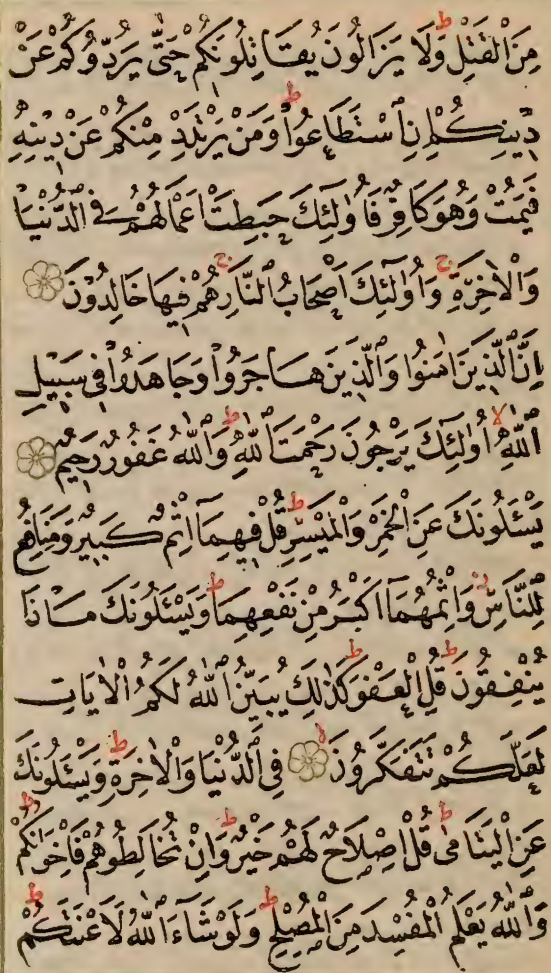 مِنَ الْقَتْلِ ۗ وَلَا يَزَالُونَ يُقَاتِلُونَكُمْ حَتَّى يَرُدُّوكُمْ عَنْ
دِينِكُمْ إِنِ ٱسْتَطَاعُوا ۗ وَمَنْ يَرْتَدِدْ مِنْكُمْ عَنْ دِينِهِ
فَيَمُتْ وَهُوَ كَافِرٌ فَأُولَٰئِكَ حَبِطَتْ أَعْمَالُهُمْ فِي الدُّنْيَا
وَالْاٰخِرَةِ ۚ وَأُولَٰئِكَ أَصْحَابُ النَّارِ ۚ هُمْ فِيهَا خَالِدُونَ
إِنَّ ٱلَّذِينَ اٰمَنُوا وَٱلَّذِينَ هَاجَرُوا وَجَاهَدُوا فِي سَبِيلِ
ٱللّٰهِ ۙ أُولَٰئِكَ يَرْجُونَ رَحْمَتَ ٱللّٰهِ ۗ وَٱللّٰهُ غَفُورٌ رَحِيمٌ
يَسْئَلُونَكَ عَنِ الْخَمْرِ وَالْمَيْسِرِ ۗ قُلْ فِيهِمَا إِثْمٌ كَبِيرٌ وَمَنَافِعُ
لِلنَّاسِ وَإِثْمُهُمَا أَكْبَرُ مِنْ نَفْعِهِمَا ۗ وَيَسْئَلُونَكَ مَاذَا
يُنْفِقُونَ ۗ قُلِ الْعَفْوَ ۗ كَذٰلِكَ يُبَيِّنُ ٱللّٰهُ لَكُمُ الْاٰيَاتِ
لَعَلَّكُمْ تَتَفَكَّرُونَ ۙ فِي ٱلدُّنْيَا وَالْاٰخِرَةِ ۗ وَيَسْئَلُونَكَ
عَنِ الْيَتَامٰى ۗ قُلْ إِصْلَاحٌ لَهُمْ خَيْرٌ ۗ وَإِنْ تُخَالِطُوهُمْ فَإِخْوَانُكُمْ ۗ
وَٱللّٰهُ يَعْلَمُ الْمُفْسِدَ مِنَ الْمُصْلِحِ ۗ وَلَوْ شَاءَ ٱللّٰهُ لَأَعْنَتَكُمْ ۗ